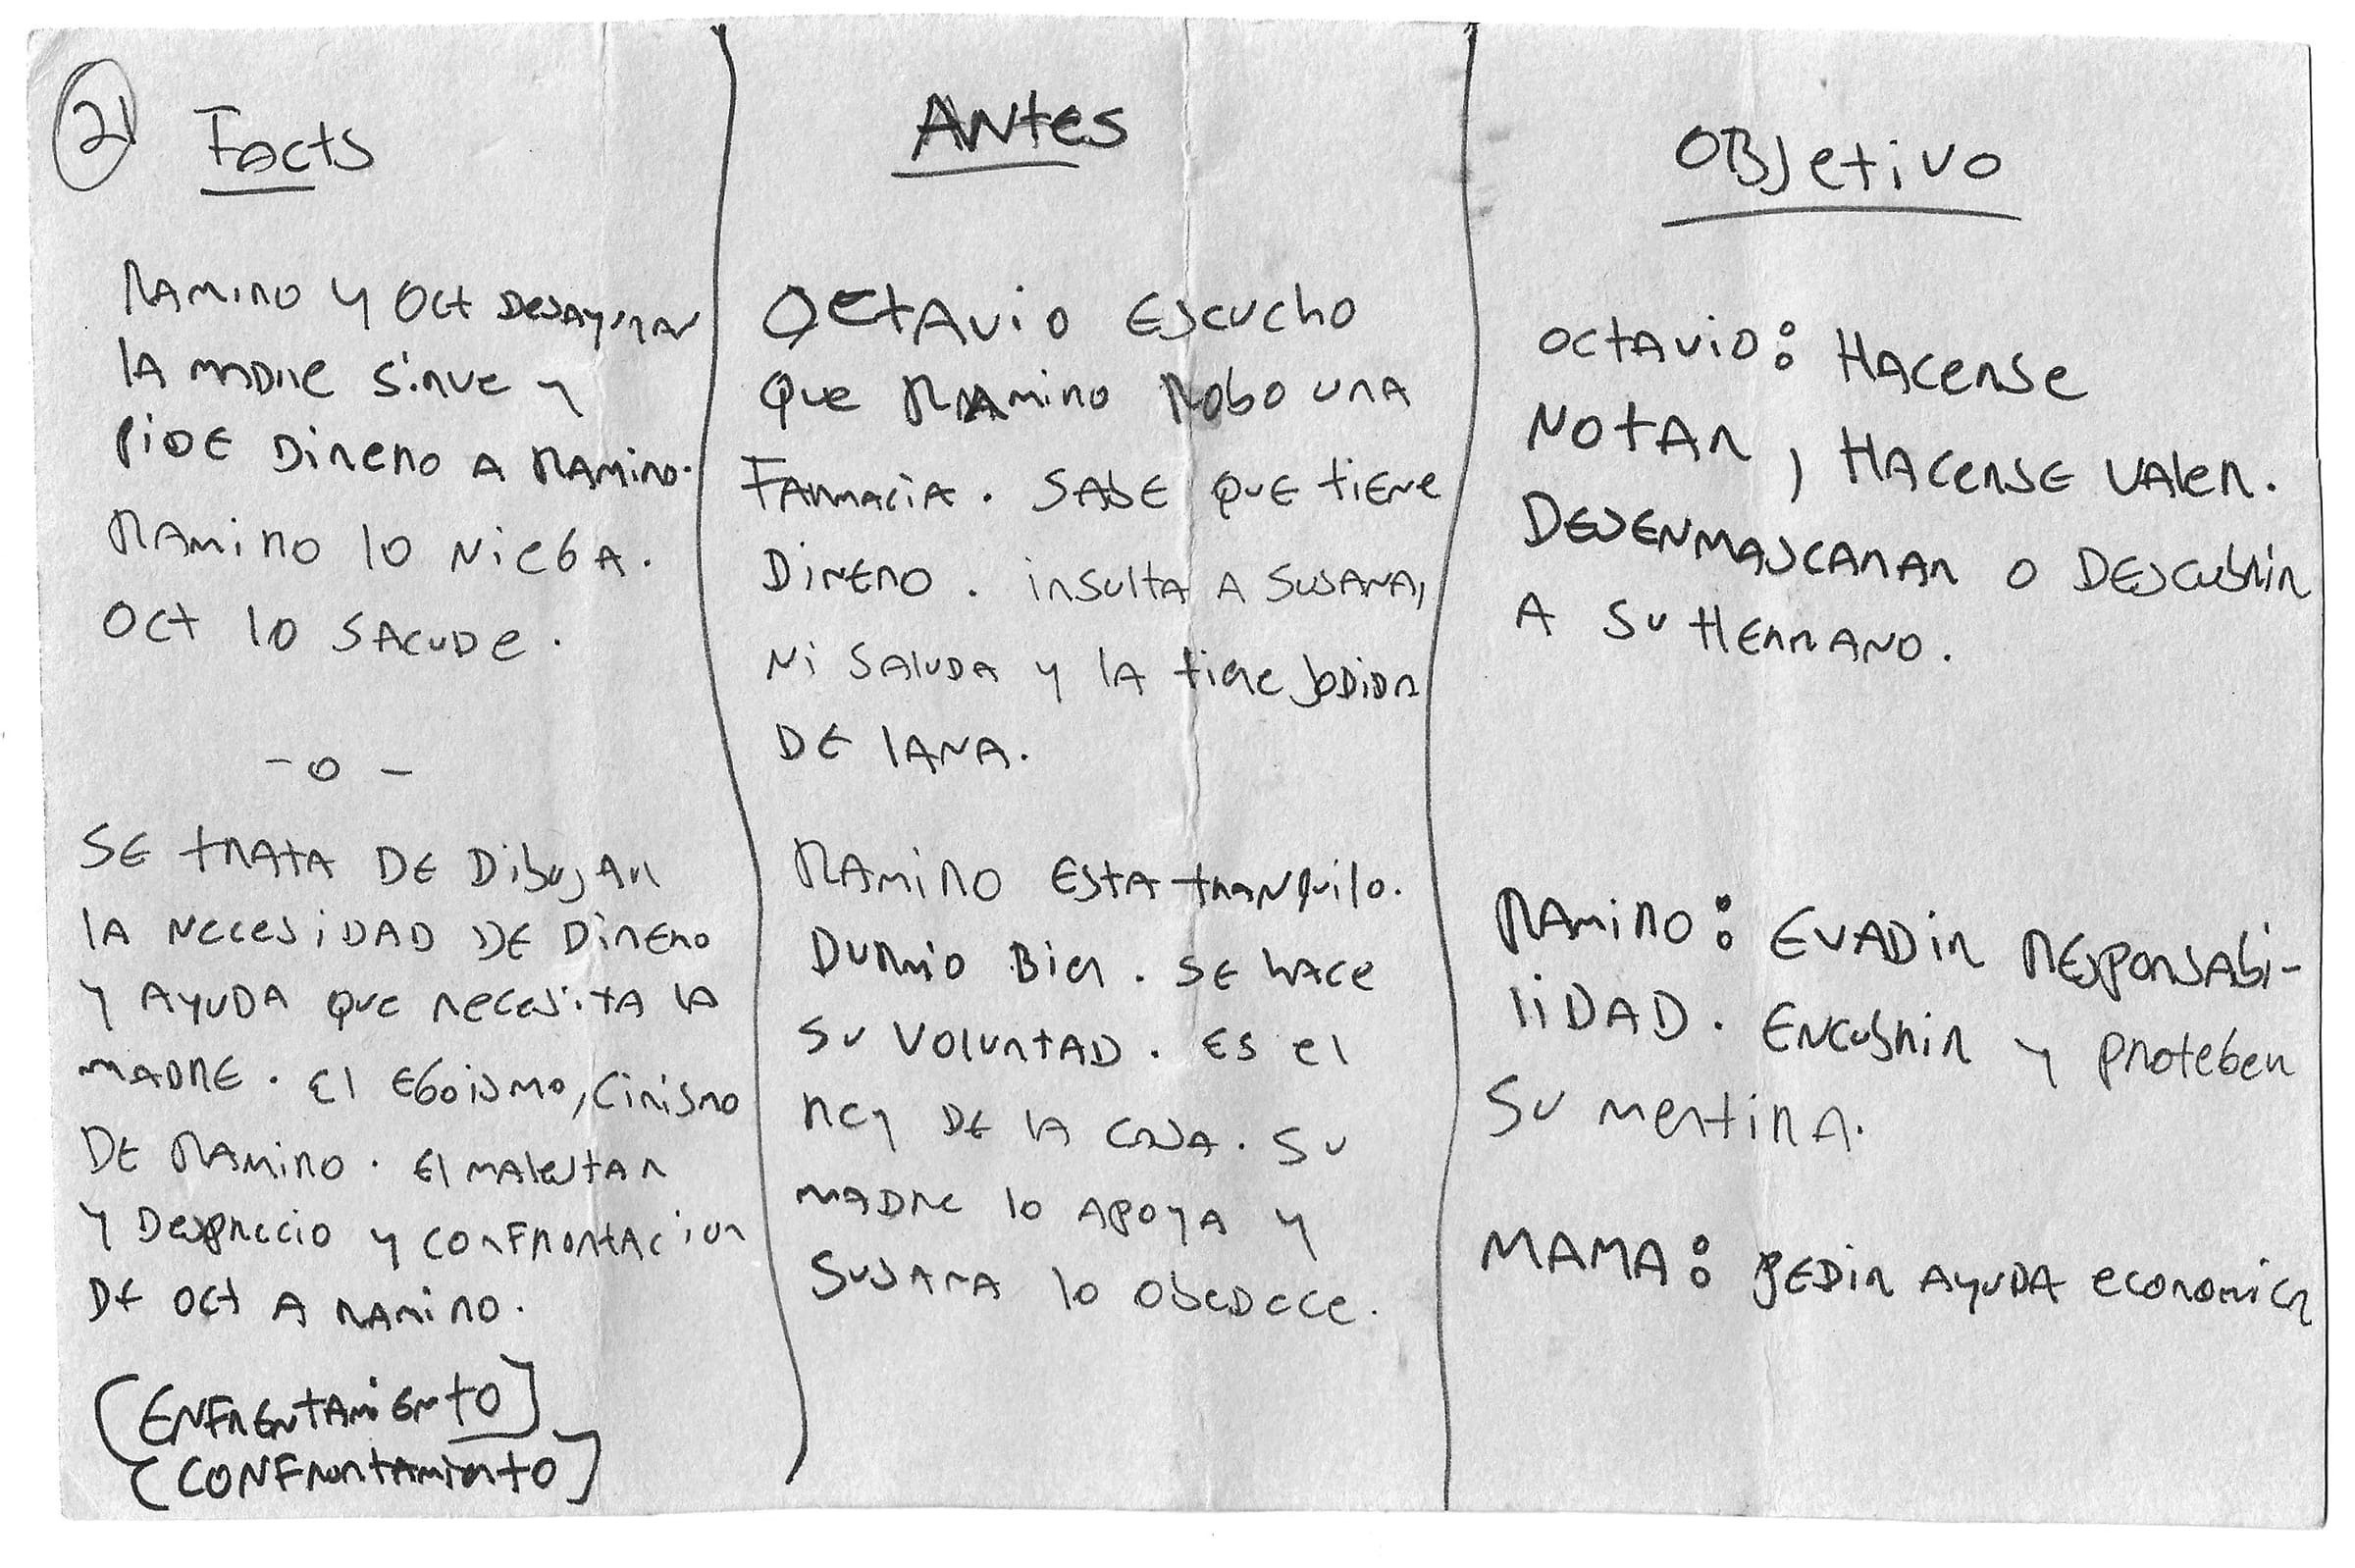 21
Facts
RAMIRO Y OCT DESAYUNAN
LA MADRE SIRVE Y
PIDE DINERO A RAMIRO.
RAMIRO LO NIEGA.
OCT LO SACUDE.
- o -
SE TRATA DE DIBUJAR
LA NECESIDAD DE DINERO
Y AYUDA QUE NECESITA LA
MADRE. EL EGOISMO, CINISMO
DE RAMIRO. EL MALESTAR
Y DESPRECIO Y CONFRONTACION
DE OCT A RAMIRO.
(ENFRENTAMIENTO)
(CONFRONTAMIENTO)
ANTES
OCTAVIO ESCUCHO
QUE RAMIRO ROBO UNA
FARMACIA. SABE QUE TIENE
DINERO. INSULTA A SUSANA,
NI SALUDA Y LA TIENE JODIDA
DE LANA.
RAMIRO ESTA TRANQUILO.
DURMIO BIEN. SE HACE
SU VOLUNTAD. ES EL
REY DE LA CASA. SU
MADRE LO APOYA Y
SUSANA LO OBEDECE.
OBJETIVO
OCTAVIO: HACERSE
NOTAR, HACERSE VALER.
DESENMASCARAR O DESCUBRIR
A SU HERMANO.
RAMIRO: EVADIR RESPONSABI-
LIDAD. ENCUBRIR Y PROTEGER
SU MENTIRA.
MAMA: PEDIR AYUDA ECONOMICA